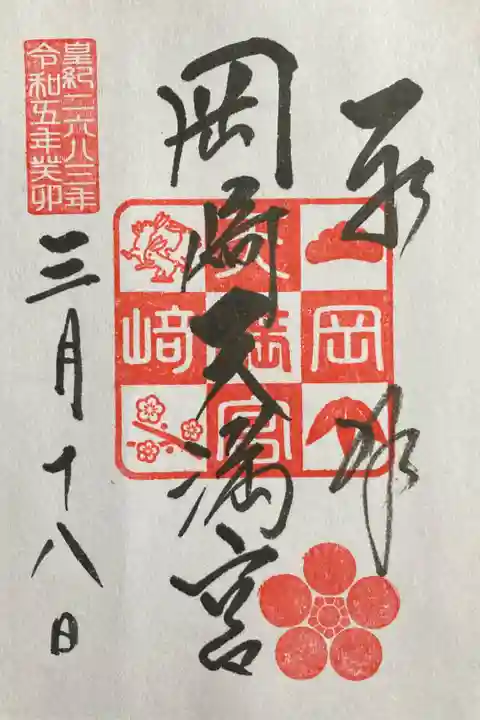 奉拝
岡崎天満宮
岡
天満宮
﨑
皇紀二六八三年
令和五年癸卯
三月十八日